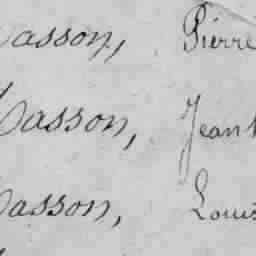 asson, Pierre
asson, Jean
asson, Louis